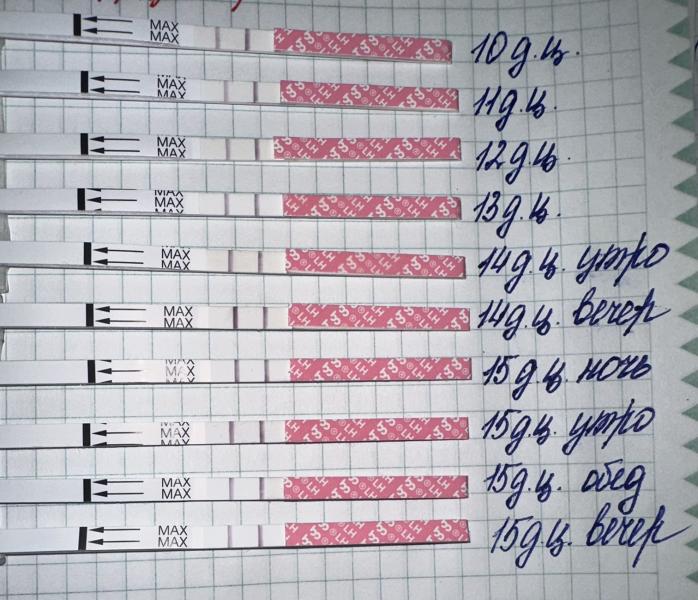 MAX
MAX
10 д.ц.
MAX
MAX
11 д.ц.
MAX
MAX
12 д.ц.
MAX
MAX
MAX
13 д.ц.
MAX
MAX
14 д.ц. утро
MAX
MAX
14 д.ц. вечер
MAX
MAX
MAX
15 д.ц. ночь
MAX
MAX
MAX
15 д.ц. утро
MAX
MAX
15 д.ц. обед
MAX
MAX
15 д.ц. вечер